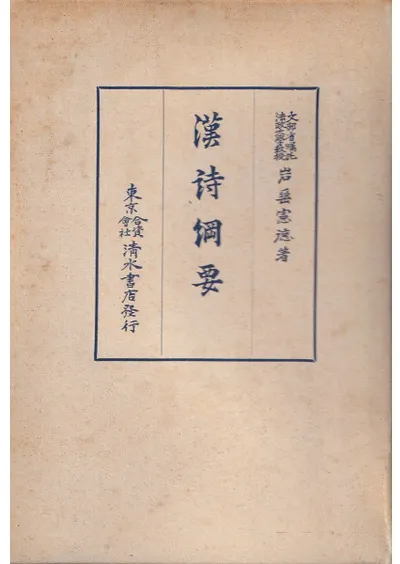 文部省囑託
法政大學教授
岩垂憲德著
漢詩綱要
東京合資會社清水書店發行